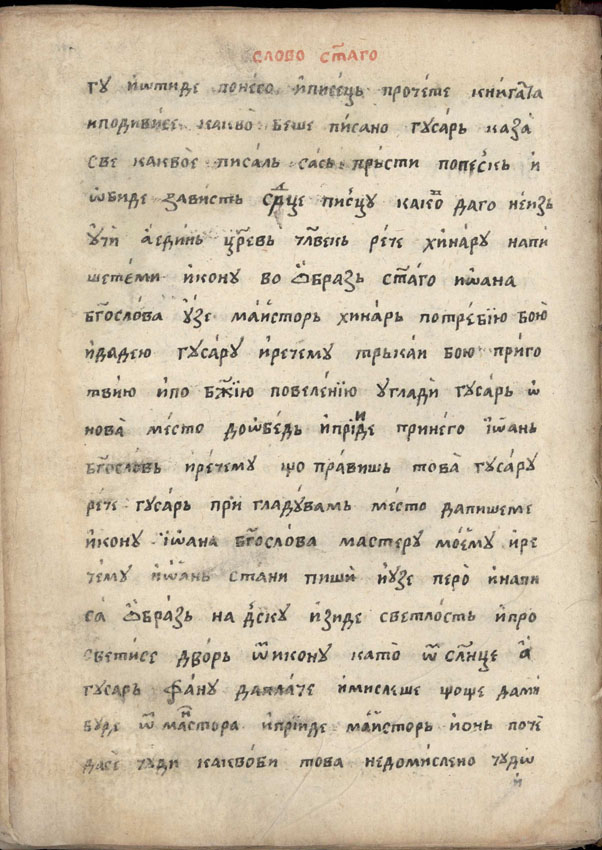 слово ст҃аго
гу и҆ѿтиде поне́со и҆писе́ць прочѐте книга́та
иподиви́се какво̀ бѐше пи́сано гуса́рь каза̀
све какво̀е писа́ль сась пръ́сти попе́скь и҆
ѡ҆биде за́висть срⷣце писцу како̀ даго неизь
у́чи а҆еди́нь цр҃евь чл҃векь ре́че хина́ру напи
шете́ми и҆кону во ѻ҆́бразь ст҃а́го иѡ҆ана
бг҃осло́ва у҆́зе ма́йсторь хина́рь потре́бїю бою̀
и҆дадею гуса́ру и҆речему трька́и бою приго
твию и҆по бж҃їю повеле́нїю углади гуса́рь ѡ҆
нова̀ ме́сто доѡ҆бѐдь и҆прїиде принего і҆ѡ҆ань
бг҃осло́вь и҆ре́чему що пра́вишь това̀ гуса́ру
ре́че гуса́рь при гладу́вамь ме́сто дапи́шеме
и҆кону і҆ѡ҆ана бг҃осло́ва мастеру моему и҆ре
че́му и҆ѡ҆ань стани пиши̂ и҆у҆зе перо̀ и҆напи
са̀ ѻ҆́бразь на дску и҆зиде светлость и҆про
свети́се дворь ѿ икону като̀ ѿ сл҃нце а҆̀
гуса́рь фа́ну дапла́че и҆мислеше що́ще дамꙋ
буде ѿ ма́истора и҆прїиде ма́йсторь и҆онь поче̂
дасѐ чу́ди какво́би това недомислено чу́дѡ
и҆